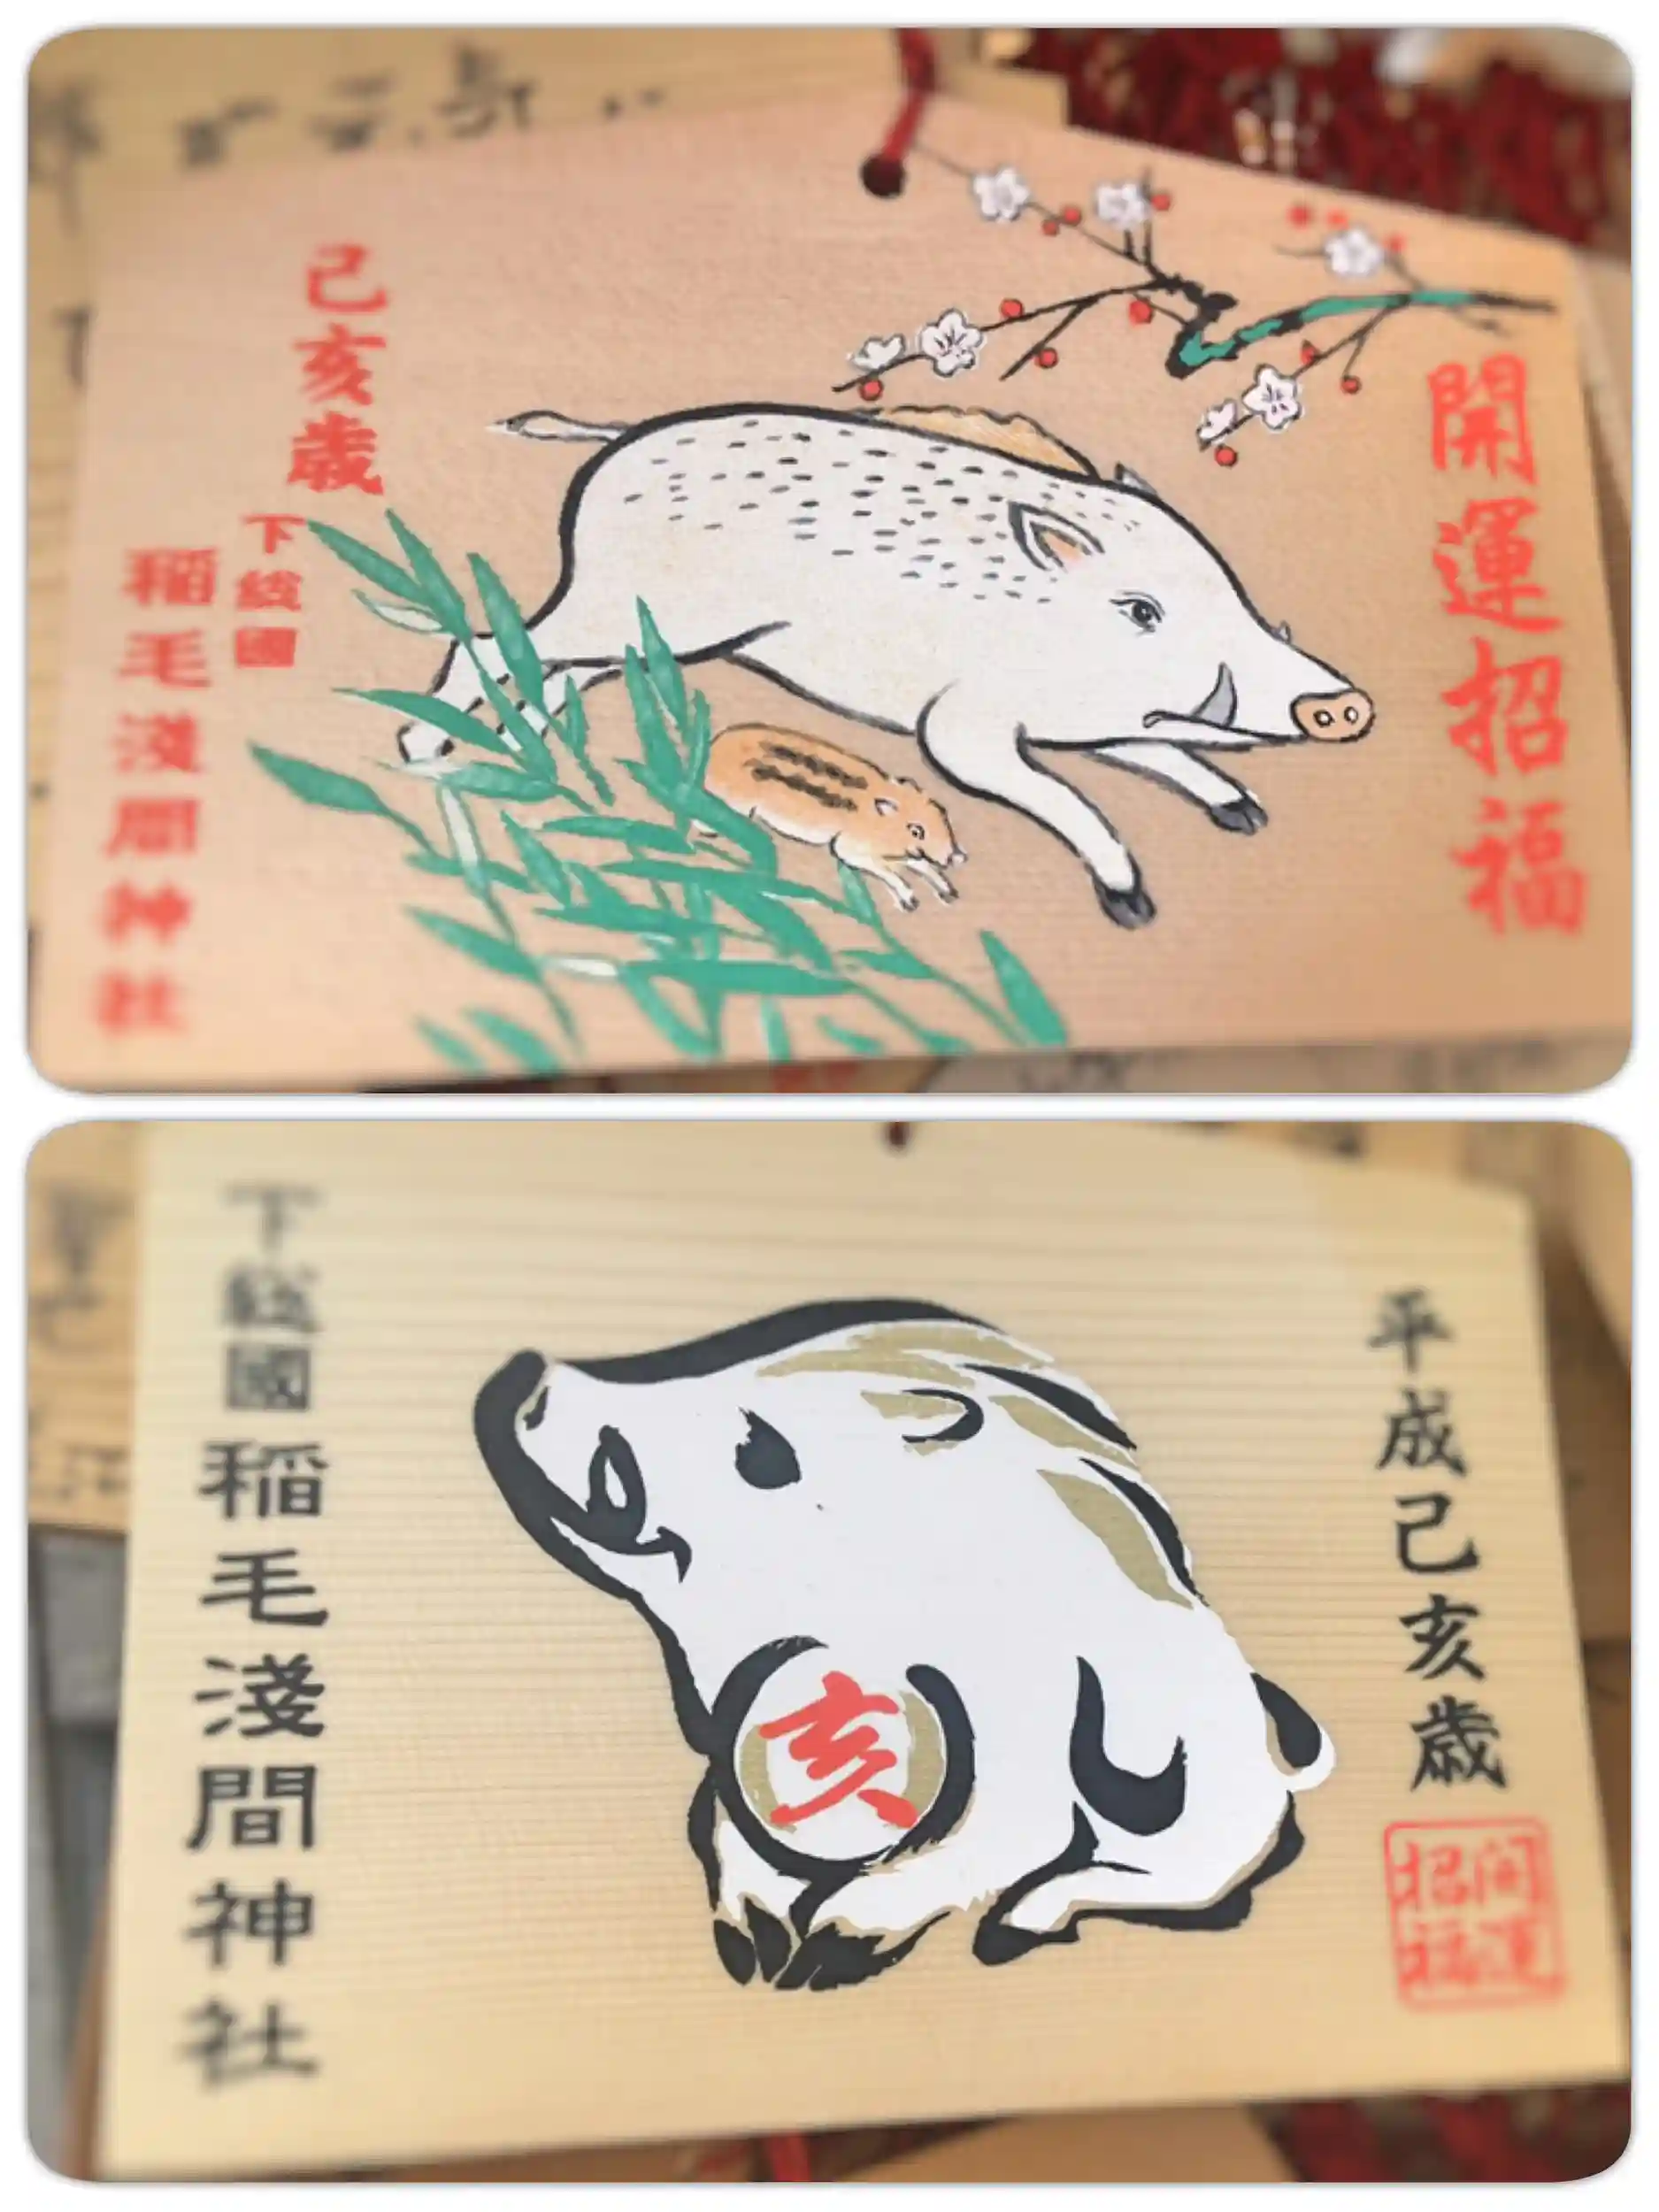 開運招福
己亥歳
下総國
稲毛淺間神社
平成己亥歳
開運
招福
亥
下総國稲毛淺間神社